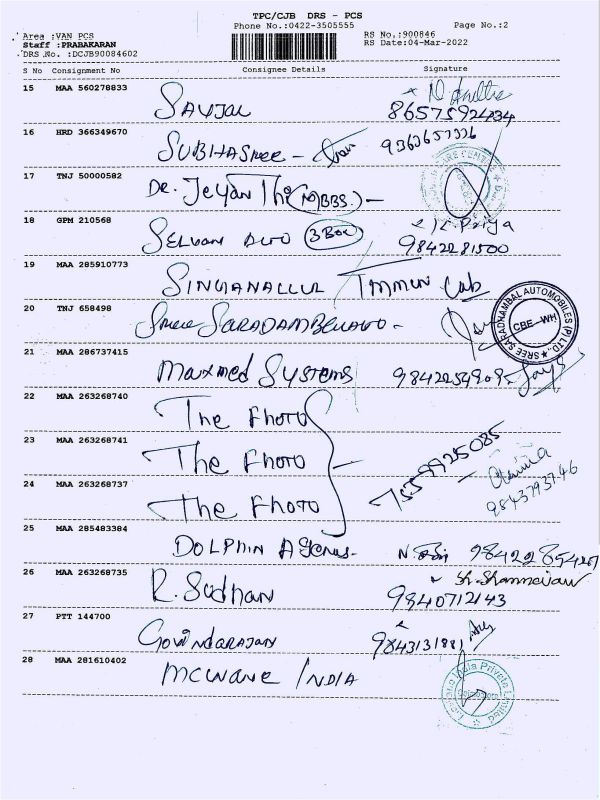 TPC/CJB DRS - PCS
Phone No.:0422-3505555 Page No.:2
Area :VAN PCS RS No.:900846
Staff :PRABAKARAN RS Date:04-Mar-2022
DRS.No. :DCJB90084602
S No Consignment No Consignee Details Signature
15 MAA 560278833
86575924234
16 HRD 366349670
SUBHASREE -
17 TNJ 50000582
DR. Jeyan (MBBS) -
18 GPM 210568 Priya
SELVAM AUTO 3 Box 9842281500
19 MAA 285910773
SINGANALLUR IMMUN Lab
20 TNJ 658498
Sree SARADAMBAL AUTO -
SREE SARADHAMBAL AUTOMOBILES (P) LTD.,
CBE - WH
21 MAA 286737415
Maxmed Systems
22 MAA 263268740
The PHOTO
23 MAA 263268741
The PHOTO
24 MAA 263268737
The PHOTO
9843793746
25 MAA 285483384
DOLPHIN Agencies
26 MAA 263268735
R. Sudhan 9840712143
27 PTT 144700
Govindarajan 9843131881
28 MAA 281610402
MCWANE INDIA
India Private Limited